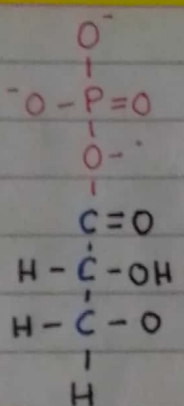 O⁻
⁻O-P=O
O-
C=O
H-C-OH
H-C-O
H